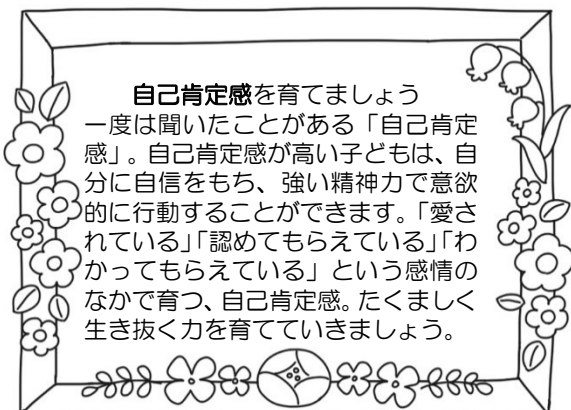 自己肯定感を育てましょう
一度は聞いたことがある「自己肯定
感」。自己肯定感が高い子どもは、自
分に自信をもち、強い精神力で意欲
的に行動することができます。「愛さ
れている」「認めてもらえている」「わ
かってもらえている」という感情の
なかで育つ、自己肯定感。たくましく
生き抜く力を育てていきましょう。